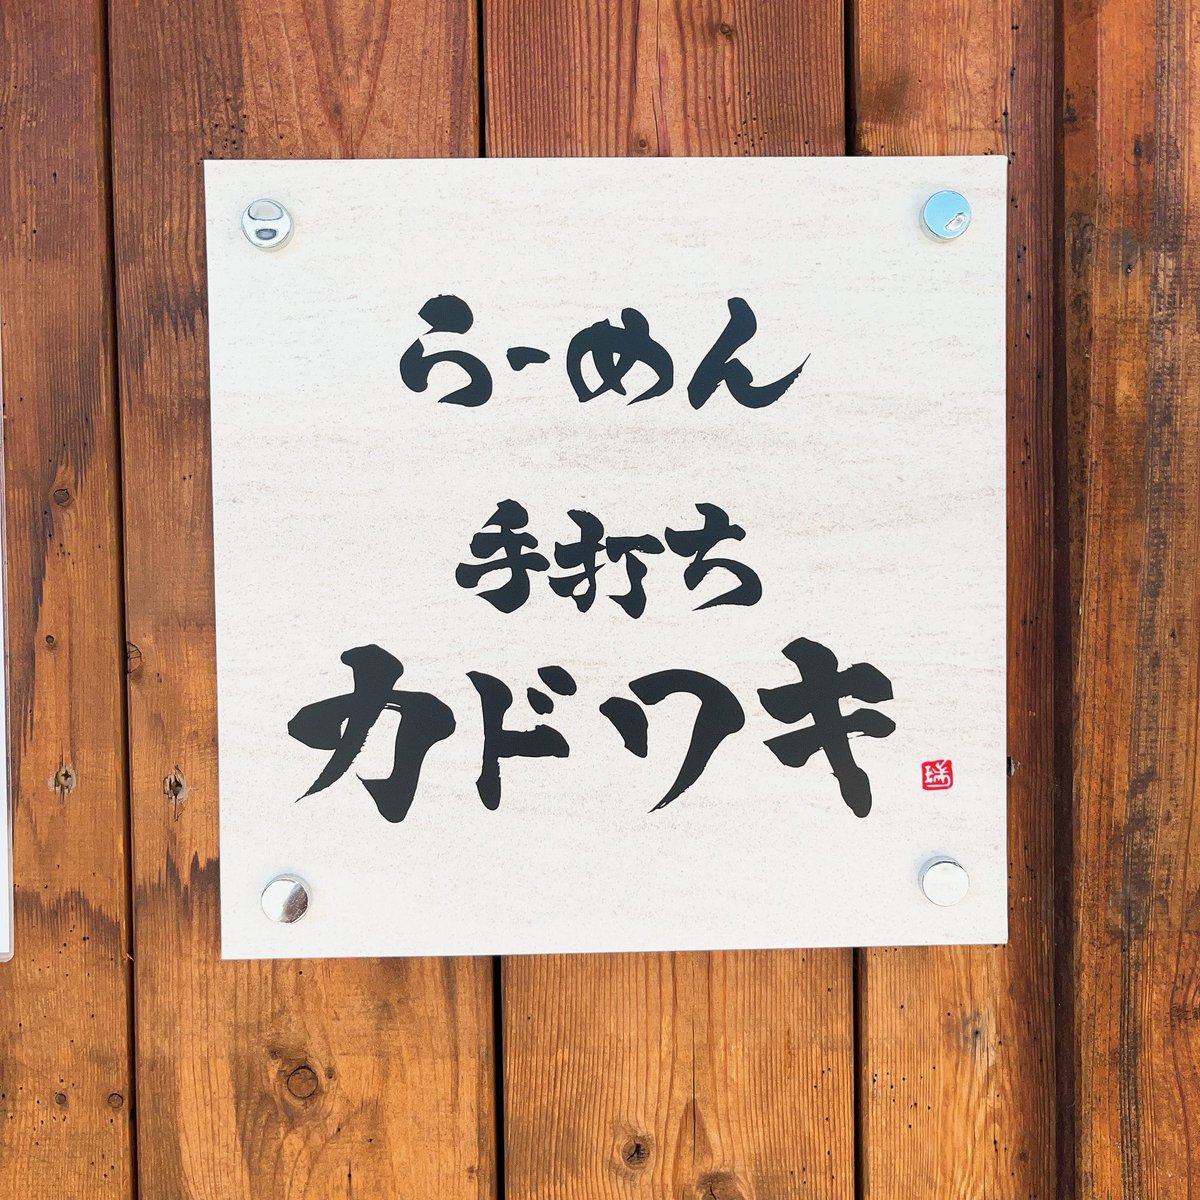 らーめん
手打ち
カドワキ